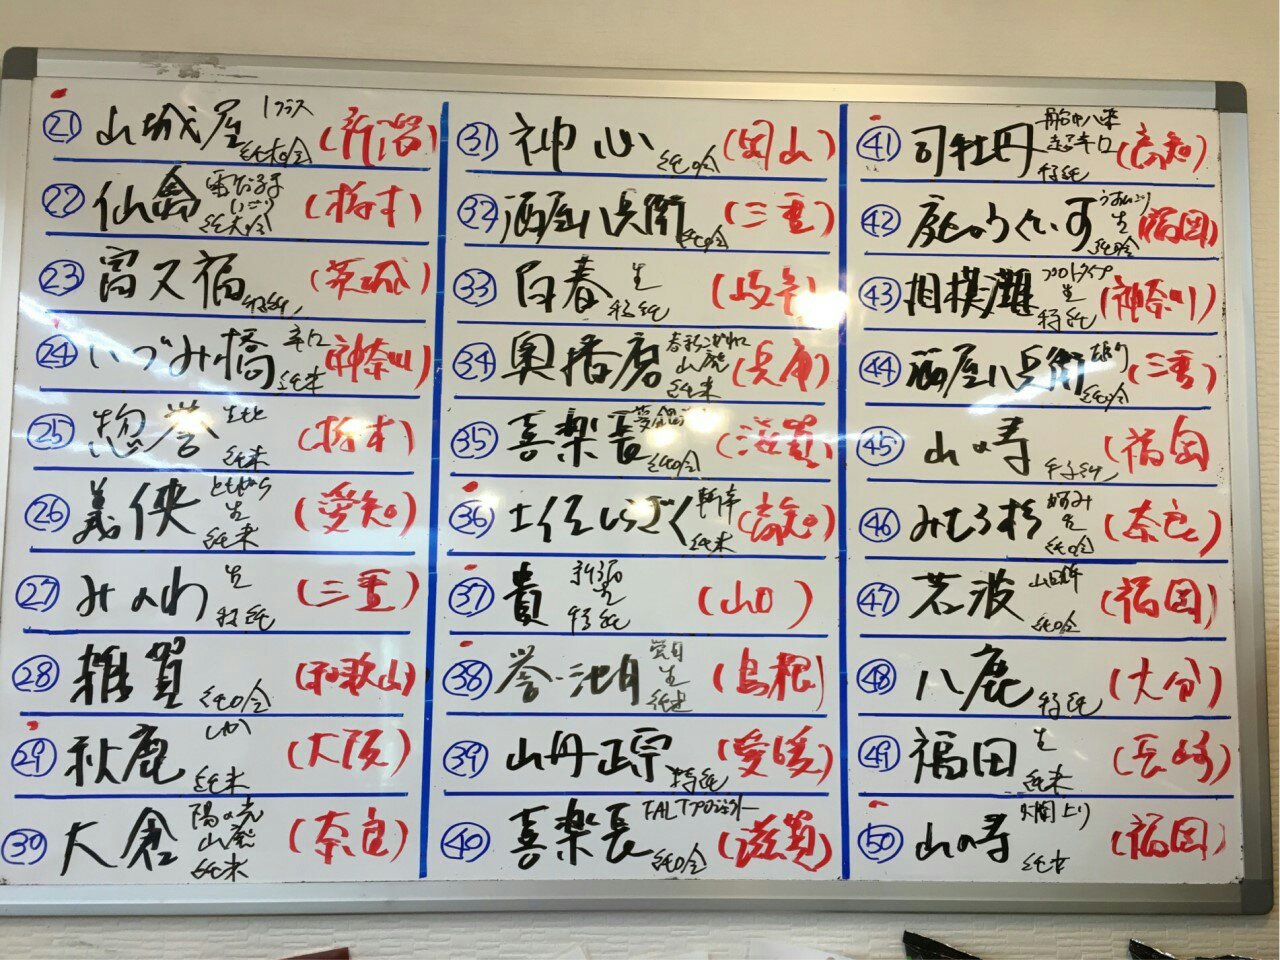 ㉑ 山城屋 1クラス 純大吟 (新潟)
㉒ 仙禽 雪だるま にごり 純大吟 (栃木)
㉓ 富久福 特純 (茨城)
㉔ いづみ橋 辛口 純米 (神奈川)
㉕ 惣誉 生酛 純米 (栃木)
㉖ 義侠 生 純米 (愛知)
㉗ みのわ 生 特純 (三重)
㉘ 雑賀 純吟 (和歌山)
㉙ 秋鹿 しか 純米 (大阪)
㉚ 大倉 陽の光 山廃 純米 (奈良)
㉛ 神心 純吟 (岡山)
㉜ 酒屋八兵衛 純吟 (三重)
㉝ 百春 生 特純 (岐阜)
㉞ 奥播磨 山廃 純米 (兵庫)
㉟ 喜楽長 純吟 (滋賀)
㊱ 土佐しらぎく 斬辛 純米 (高知)
㊲ 貴 生 特純 (山口)
㊳ 誉池月 生 純米 (島根)
㊴ 山丹正宗 特純 (愛媛)
㊵ 喜楽長 TALTプロジェクト 純吟 (滋賀)
㊶ 司牡丹 船中八策 超辛口 特純 (高知)
㊷ 庭のうぐいす うすにごり 生 純吟 (福岡)
㊸ 相模灘 プロトタイプ 生 特純 (神奈川)
㊹ 酒屋八兵衛 純吟 (三重)
㊺ 山の寿 (福岡)
㊻ みむろ杉 生 純吟 (奈良)
㊼ 若波 山田錦 純吟 (福岡)
㊽ 八鹿 特純 (大分)
㊾ 福田 生 純米 (長崎)
㊿ 山の寿 純米 (福岡)